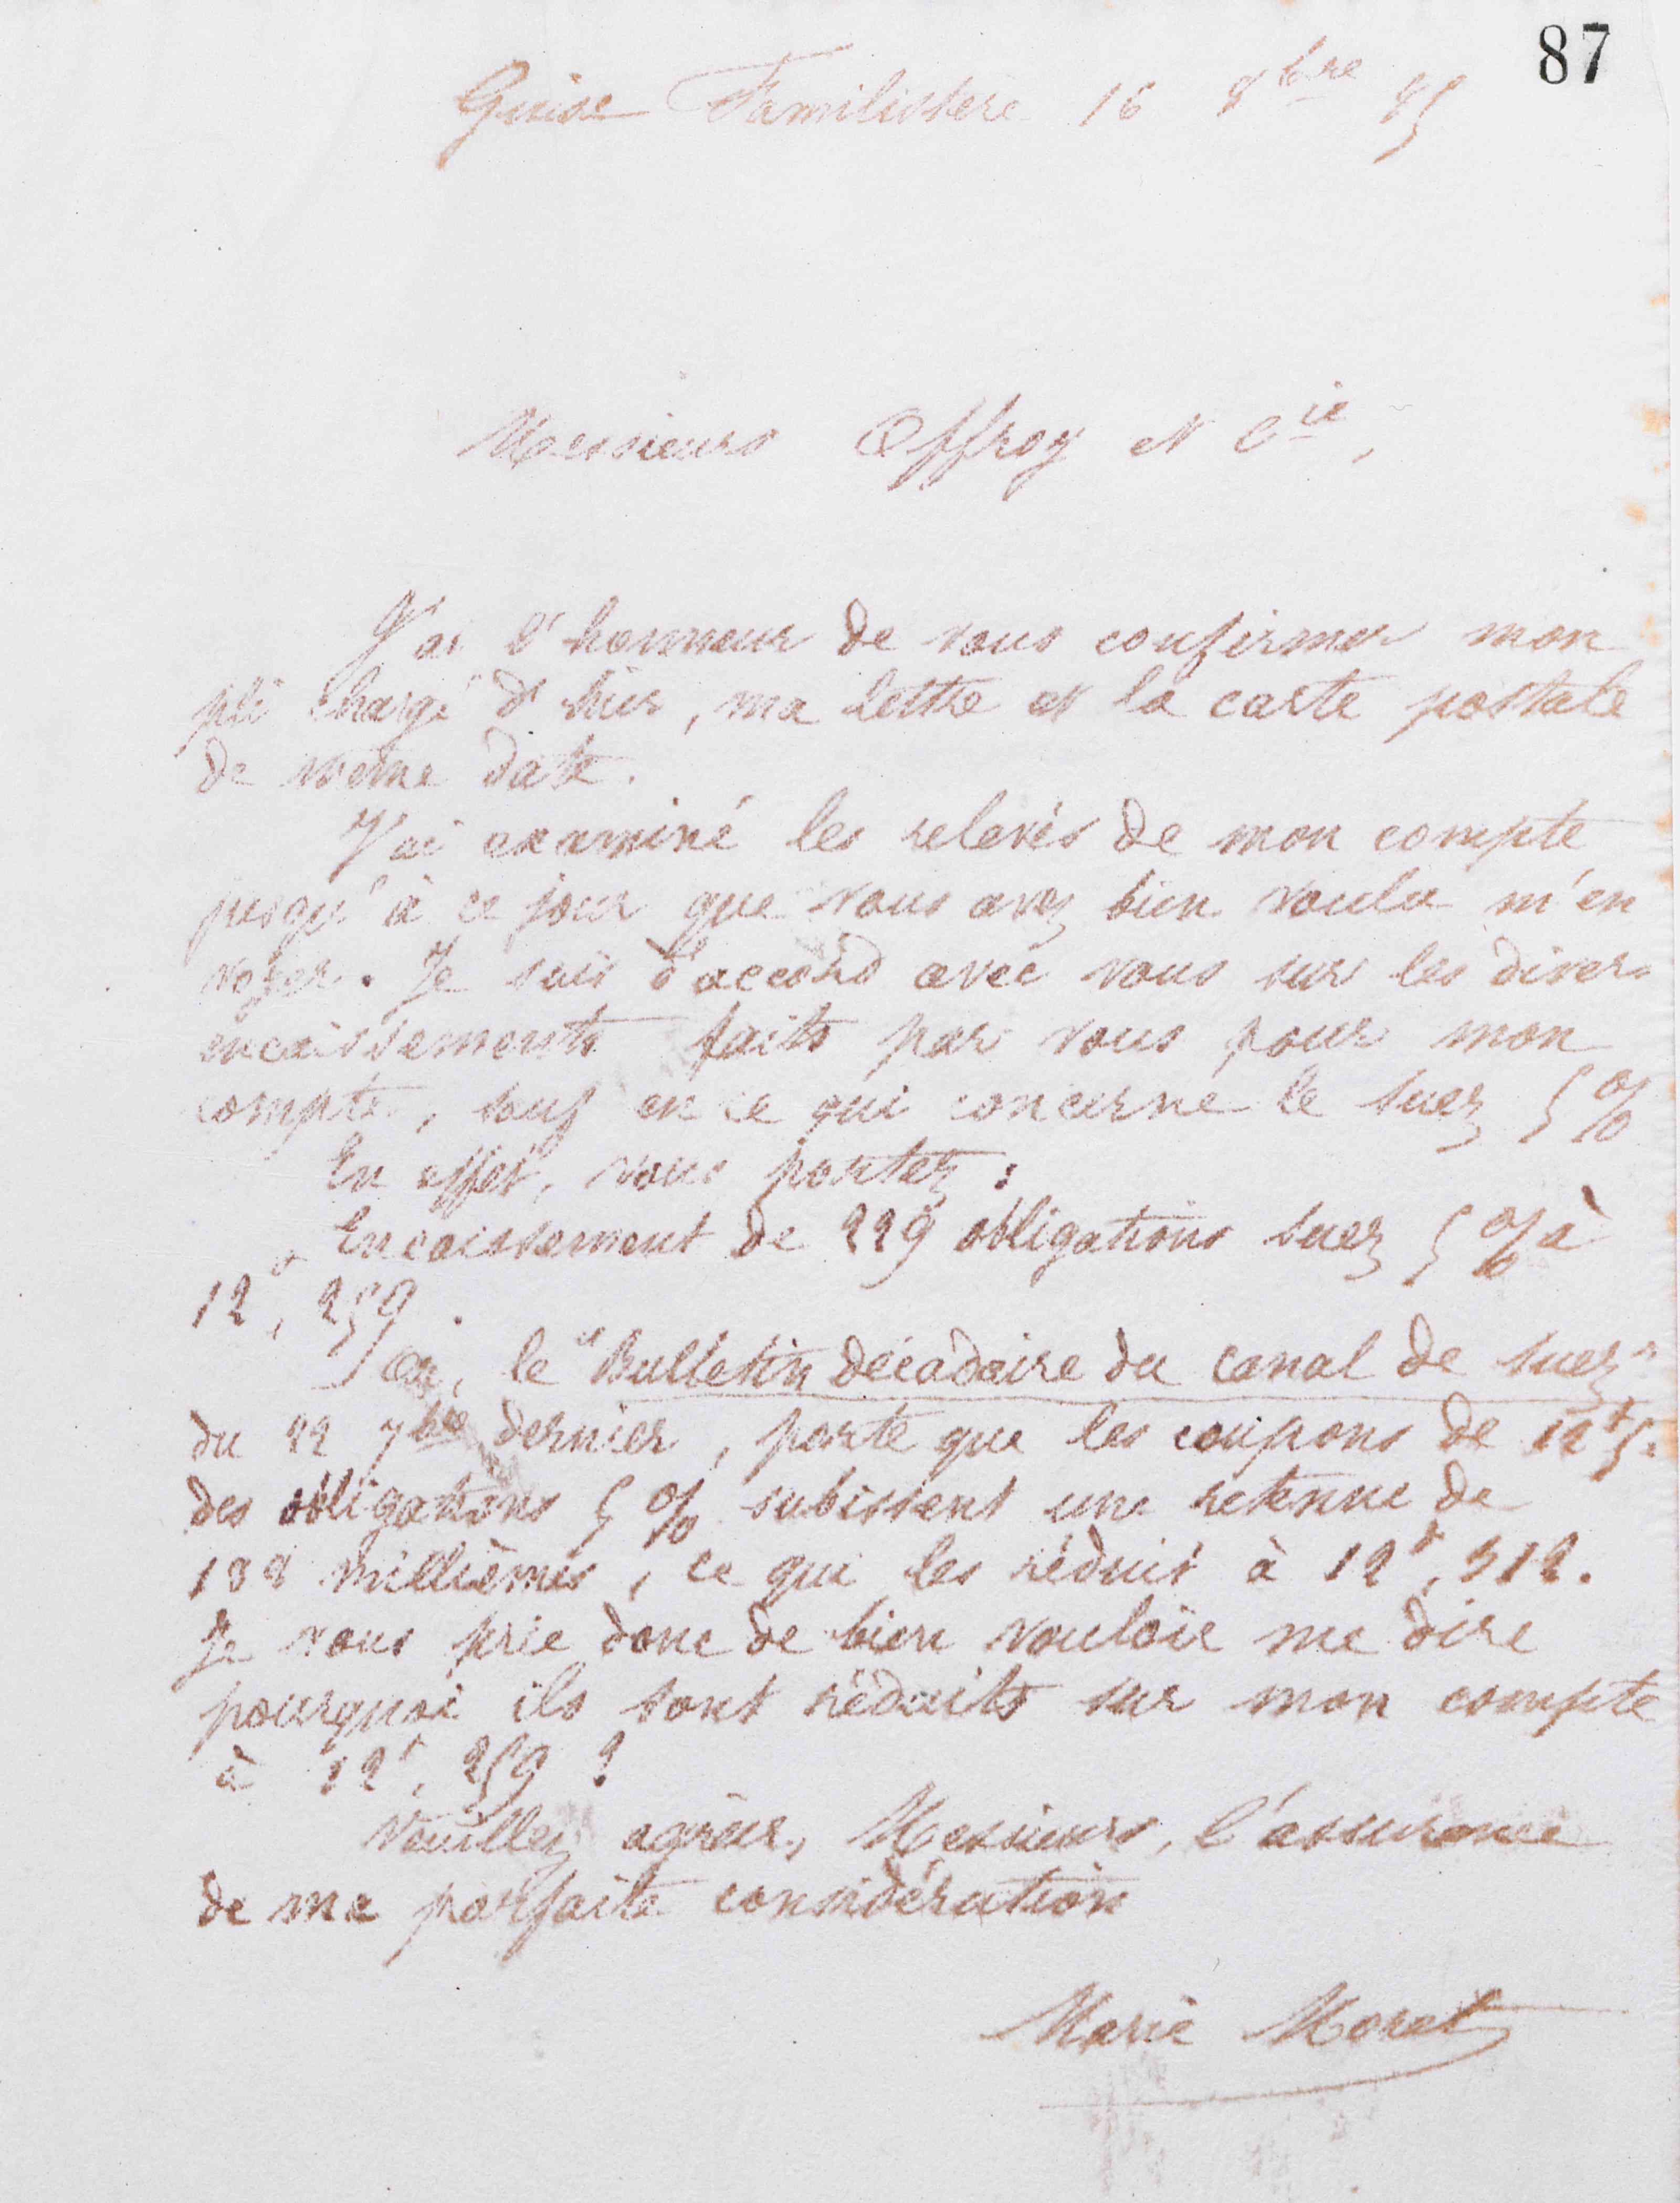 87
Guise Familistère 16 8bre 85
Messieurs Offroy et Cie,
J'ai l'honneur de vous confirmer mon
pli chargé d'hier, ma lettre et la carte postale
de même date.
J'ai examiné les relevés de mon compte
jusqu'à ce jour que vous avez bien voulu m'en
voyer. Je suis d'accord avec vous sur les divers
encaissements faits par vous pour mon
compte, sauf en ce qui concerne le Suez 5 %
En effet, vous portez :
Encaissement de 229 obligations Suez 5 % à
12f, 259.
Or, le "Bulletin décadaire du canal de Suez"
du 22 7bre dernier, porte que les coupons de 12f5.
des obligations 5 % subissent une retenue de
188 millièmes, ce qui les réduit à 12f, 312.
Je vous prie donc de bien vouloir me dire
pourquoi ils sont réduits sur mon compte
à 12f, 259 ?
Veuillez agréer, Messieurs, l'assurance
de ma parfaite considération
Marie Moret